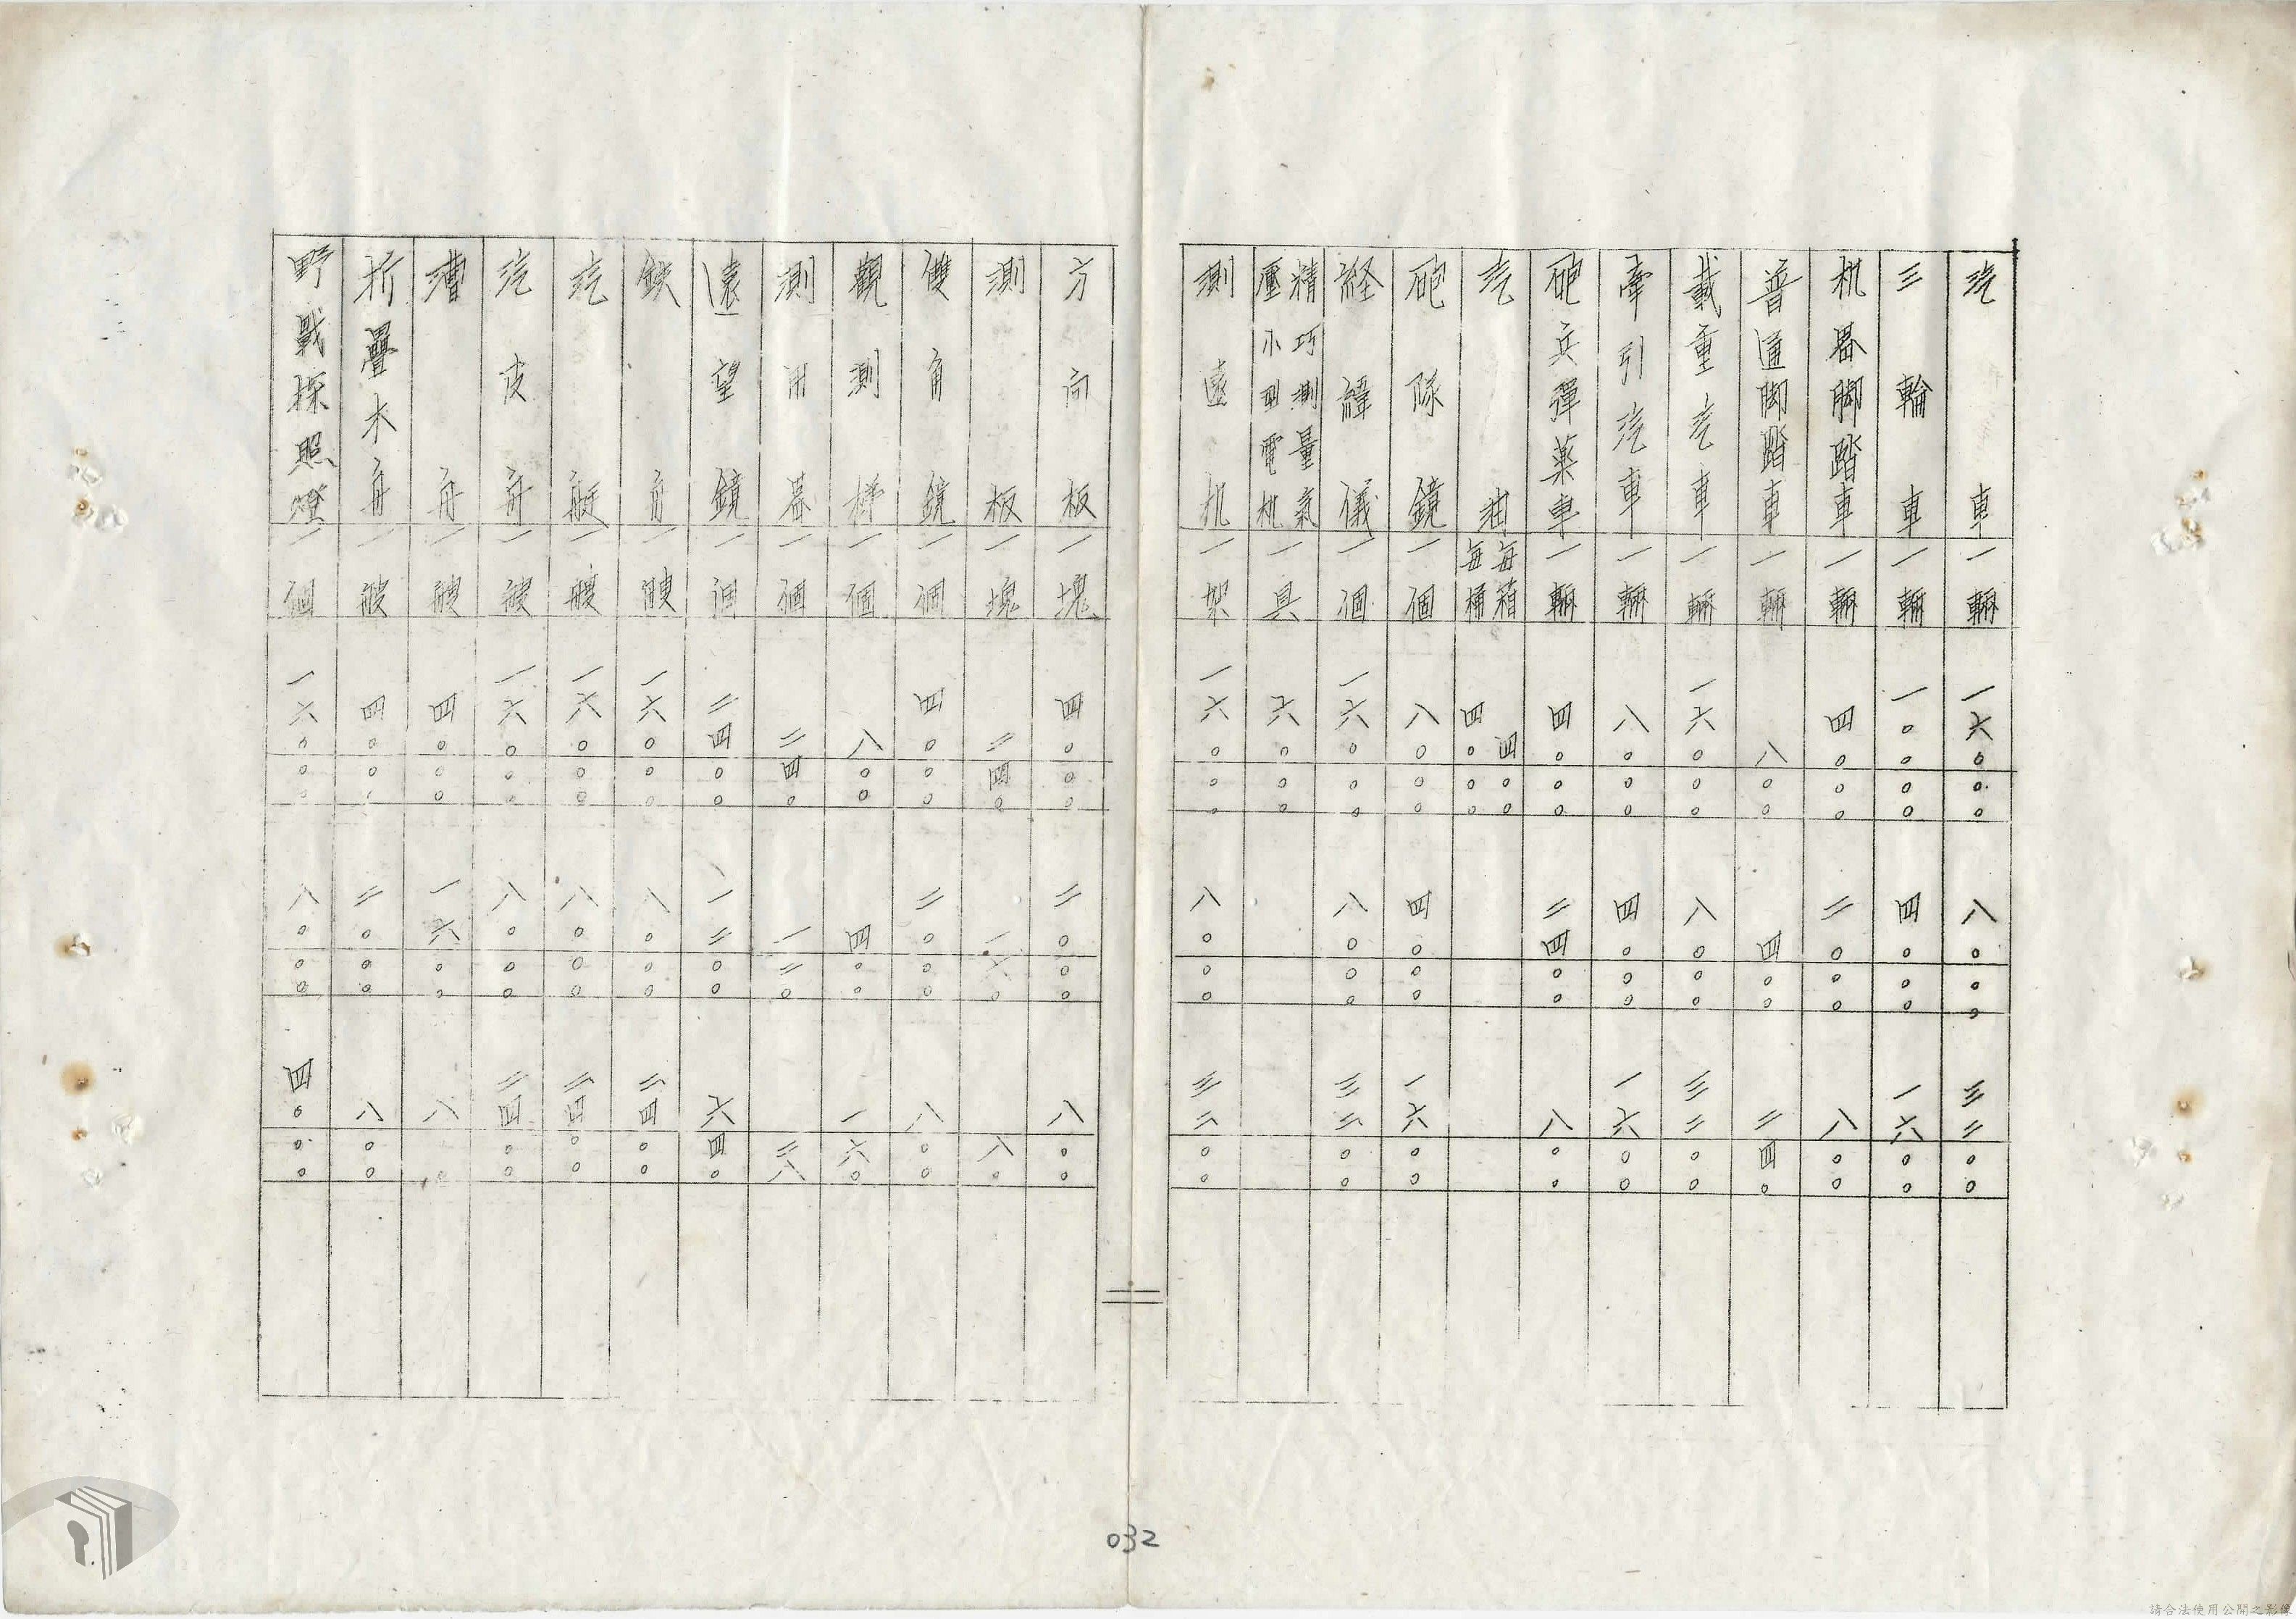 汽車 一輛 一六〇〇〇 八〇〇〇 三二〇〇
三輪車 一輛 一〇〇〇〇 四〇〇〇 一六〇〇
机器脚踏車 一輛 四〇〇〇 二〇〇〇 八〇〇
普通脚踏車 一輛 八〇〇 四〇〇 二四〇
載重汽車 一輛 一六〇〇〇 八〇〇〇 三二〇〇
牽引汽車 一輛 八〇〇〇 四〇〇〇 一六〇〇
砲兵彈薬車 一輛 四〇〇〇 二四〇〇 八〇〇
汽油 每箱 四〇〇 每桶 四〇〇〇
砲隊鏡 一個 八〇〇〇 四〇〇〇 一六〇〇
経緯儀 一個 一六〇〇〇 八〇〇〇 三二〇〇
精巧測量氣壓小型電机 一具 六〇〇〇
測遠机 一架 一六〇〇〇 八〇〇〇 三二〇〇
方向板 一塊 四〇〇〇 二〇〇〇 八〇〇
測板 一塊 二四〇 一六〇 八〇
雙角鏡 一個 四〇〇〇 二〇〇〇 八〇〇
觀測梯 一個 八〇〇 四〇〇 一六〇
測用器 一個 二四〇 一二〇 二八
遠望鏡 一個 二四〇〇 一二〇〇 六四〇
鉄舟 一艘 一六〇〇〇 八〇〇〇 二四〇〇
汽艇 一艘 一六〇〇〇 八〇〇〇 二四〇〇
汽皮舟 一艘 一六〇〇〇 八〇〇〇 二四〇〇
漕舟 一艘 四〇〇〇 一六〇〇 八〇〇
折疊木舟 一艘 四〇〇〇 二〇〇〇 八〇〇
野戰探照燈 一個 一六〇〇〇 八〇〇〇 四〇〇〇
032
請合法使用公開之影像